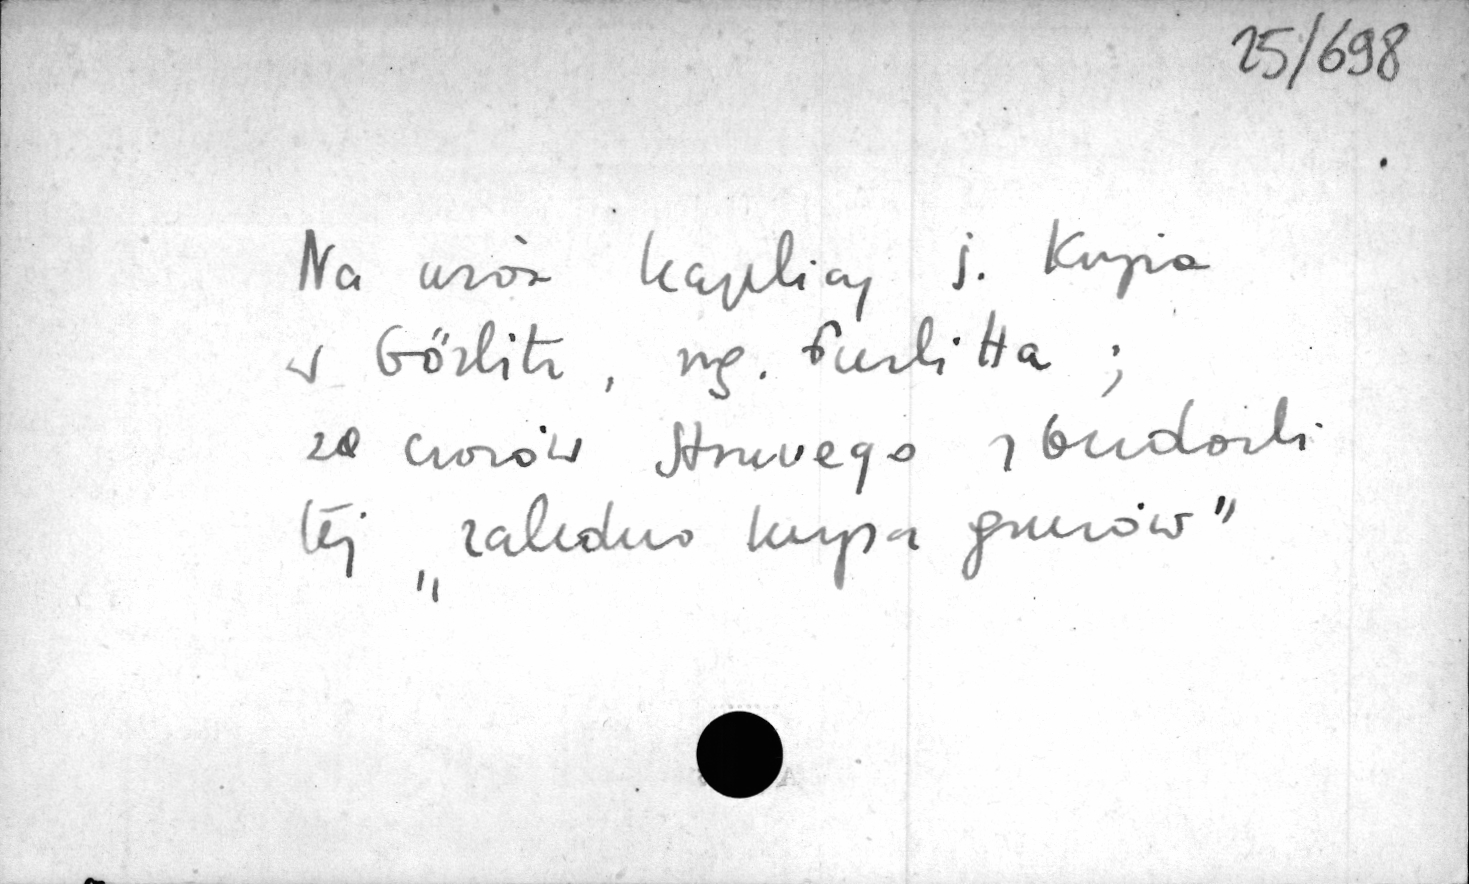 25/698
Na wzór kaplicy j. Krzyża
w Görlitz, wg. Gurlitta;
za czasów Struvego z budowli
tej „zaledwo kupa gruzów”